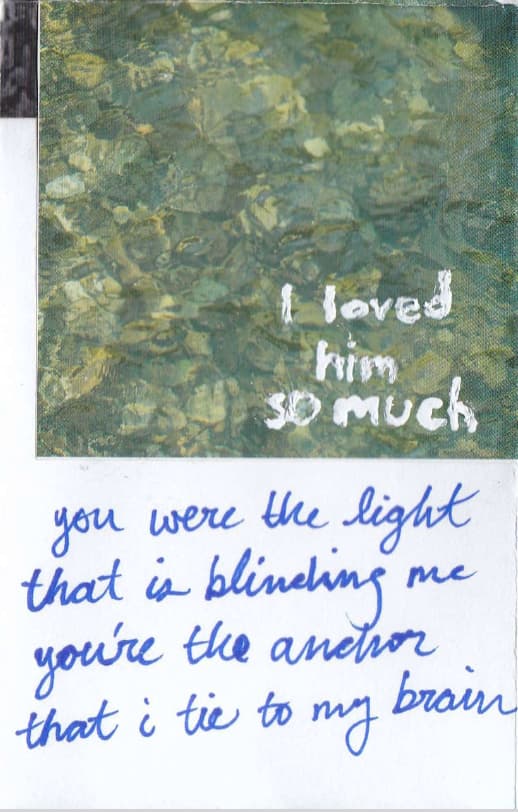 I loved
him
so much
you were the light
that is blinding me
you're the anchor
that i tie to my brain